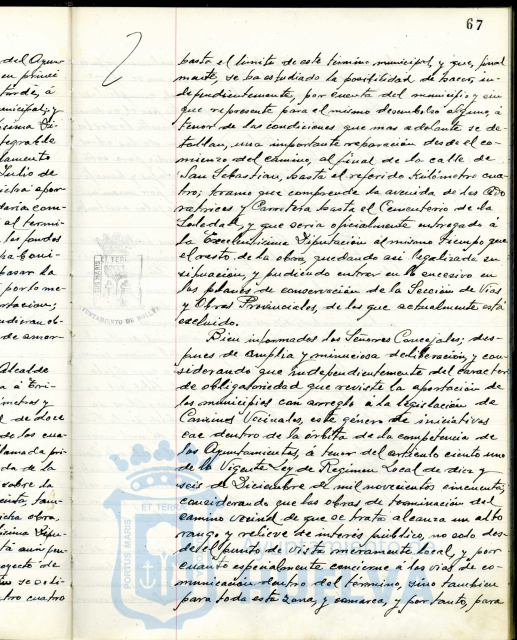 67
2
hasta el limite de este termino municipal, y que, final
mente, se ha estudiado la posibilidad de hacer, in-
dependientemente, por cuenta del municipio y sin
que represente para el mismo desembolso alguno, á
tenor de las condiciones que mas adelante se de-
tallan, una importante reparación desde el co-
mienzo del camino, al final de la calle de
San Sebastian, hasta el referido Kilómetro cua
tro; tramo que comprende la avenida de las Ado
ratrices y Carretera hasta el Cementerio de la
Soledad, y que seria oficialmente entregado á
la Excelentisima Diputación al mismo tiempo que
el resto de la obra, quedando asi legalizada su
situación, y pudiendo entrar en lo sucesivo en
los planes de conservación de la Sección de Vias
y Obras Provinciales, de los que actualmente está
excluido.
Bien informados los Señores Concejales; des-
pues de amplia y minuciosa deliberación, y con-
siderando que independientemente del caracter
de obligatoriedad que reviste la aportación de
los municipios con arreglo á la legislación de
Caminos Vecinales, este género de iniciativas
cae dentro de la órbita de la competencia de
los Ayuntamientos, á tenor del articulo ciento uno
de la Vigente Ley de Regimen Local de diez y
seis de Diciembre de mil novecientos cincuenta;
considerando que las obras de terminación del
camino vecinal de que se trata alcanza un alto
rango y relieve de interés público, no solo des-
de el punto de vista meramente local, y por
cuanto especialmente concierne á las vias de co-
municación dentro del término, sino tambien
para toda esta zona, y comarca, y por tanto, para
del Ayun-
Julio de
al termi-
los fondos
pasar la
por lo me-
de amor-
Alcalde
metros y
de doce
de los cua-
da de la
sobre la
icha obra,
royecto de
tro cuatro
AYUNTAMIENTO DE HUELVA
PORTUS MARIS
ET TERRAE
HUELVA